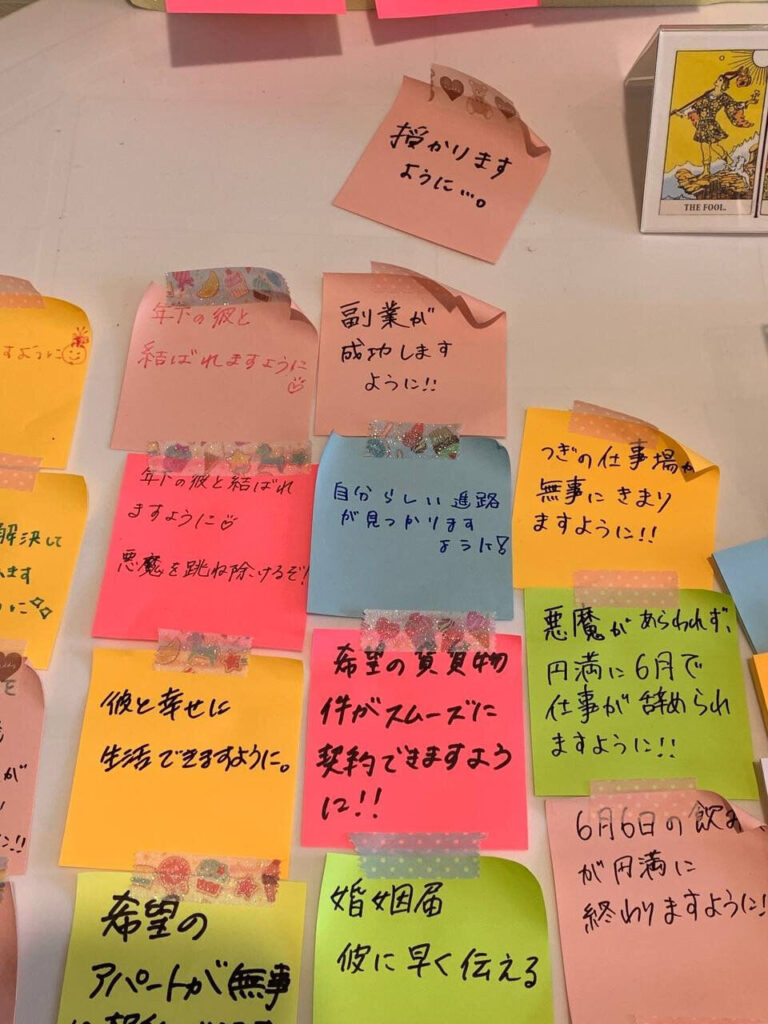 授かります
ように…。
THE FOOL.
年下の彼と
結ばれますように
副業が
成功します
ように!!
すように
年下の彼と結ばれ
ますように
悪魔を跳ね除けるぞ!
自分らしい進路
が見つかります
ように!
つぎの仕事場が
無事にきまり
ますように!!
解決して
ます
に
彼と幸せに
生活できますように。
希望の賃貸物
件がスムーズに
契約できますよう
に!!
悪魔があらわれず、
円満に6月で
仕事が辞められ
ますように!!
を
が
!
に!!
希望の
アパートが無事
に契約
婚姻届
彼に早く伝える
6月6日の飲み
が円満に
終わりますように!